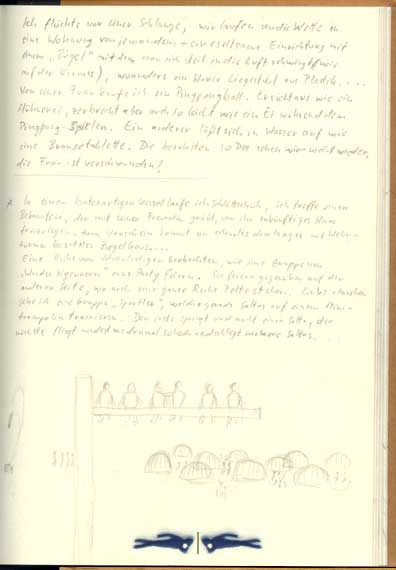 Ich flüchte vor einer Schlange, wir laufen um die Wette in
eine Wohnung von jemandem - eine seltsame Einrichtung mit
einem "Bügel" mit dem man sich steil in die Luft schwingt (wie
auf der Kirmes), woanders ein blauer Liegestuhl aus Plastik....
Von einer Frau kaufe ich ein Pingpongball. Er sieht aus wie ein
Hühnerei, zerbricht aber auch so leicht wie ein Ei während dem
Pingpong-Spielen. Ein anderer löst sich in Wasser auf wie
eine Brausetablette. Die bezahlten 10 DM sehen wir nicht wieder,
die Frau ist verschwunden!
In einem laufe ich Schlittschuh, ich treffe einen
Bekannten, der mit seiner Freundin gräbt, um ihr zukünftiges Haus
freizulegen. Zum Vorschein kommt ein
Ziegelhaus...
Eine Reihe von beobachten, wie eine Gruppe von
eine Party feiern. Sie sitzen gegenüber auf der
anderen Seite, wo auch eine ganze Reihe Zelte stehen. Links
sehe ich eine Gruppe "Sportler", welche gerade Saltos auf einem Mini-
trampolin trainieren. Der erste springt und macht einen Salto, der
nächste fliegt mindestens dreimal so hoch und schlägt mehrere Saltos....